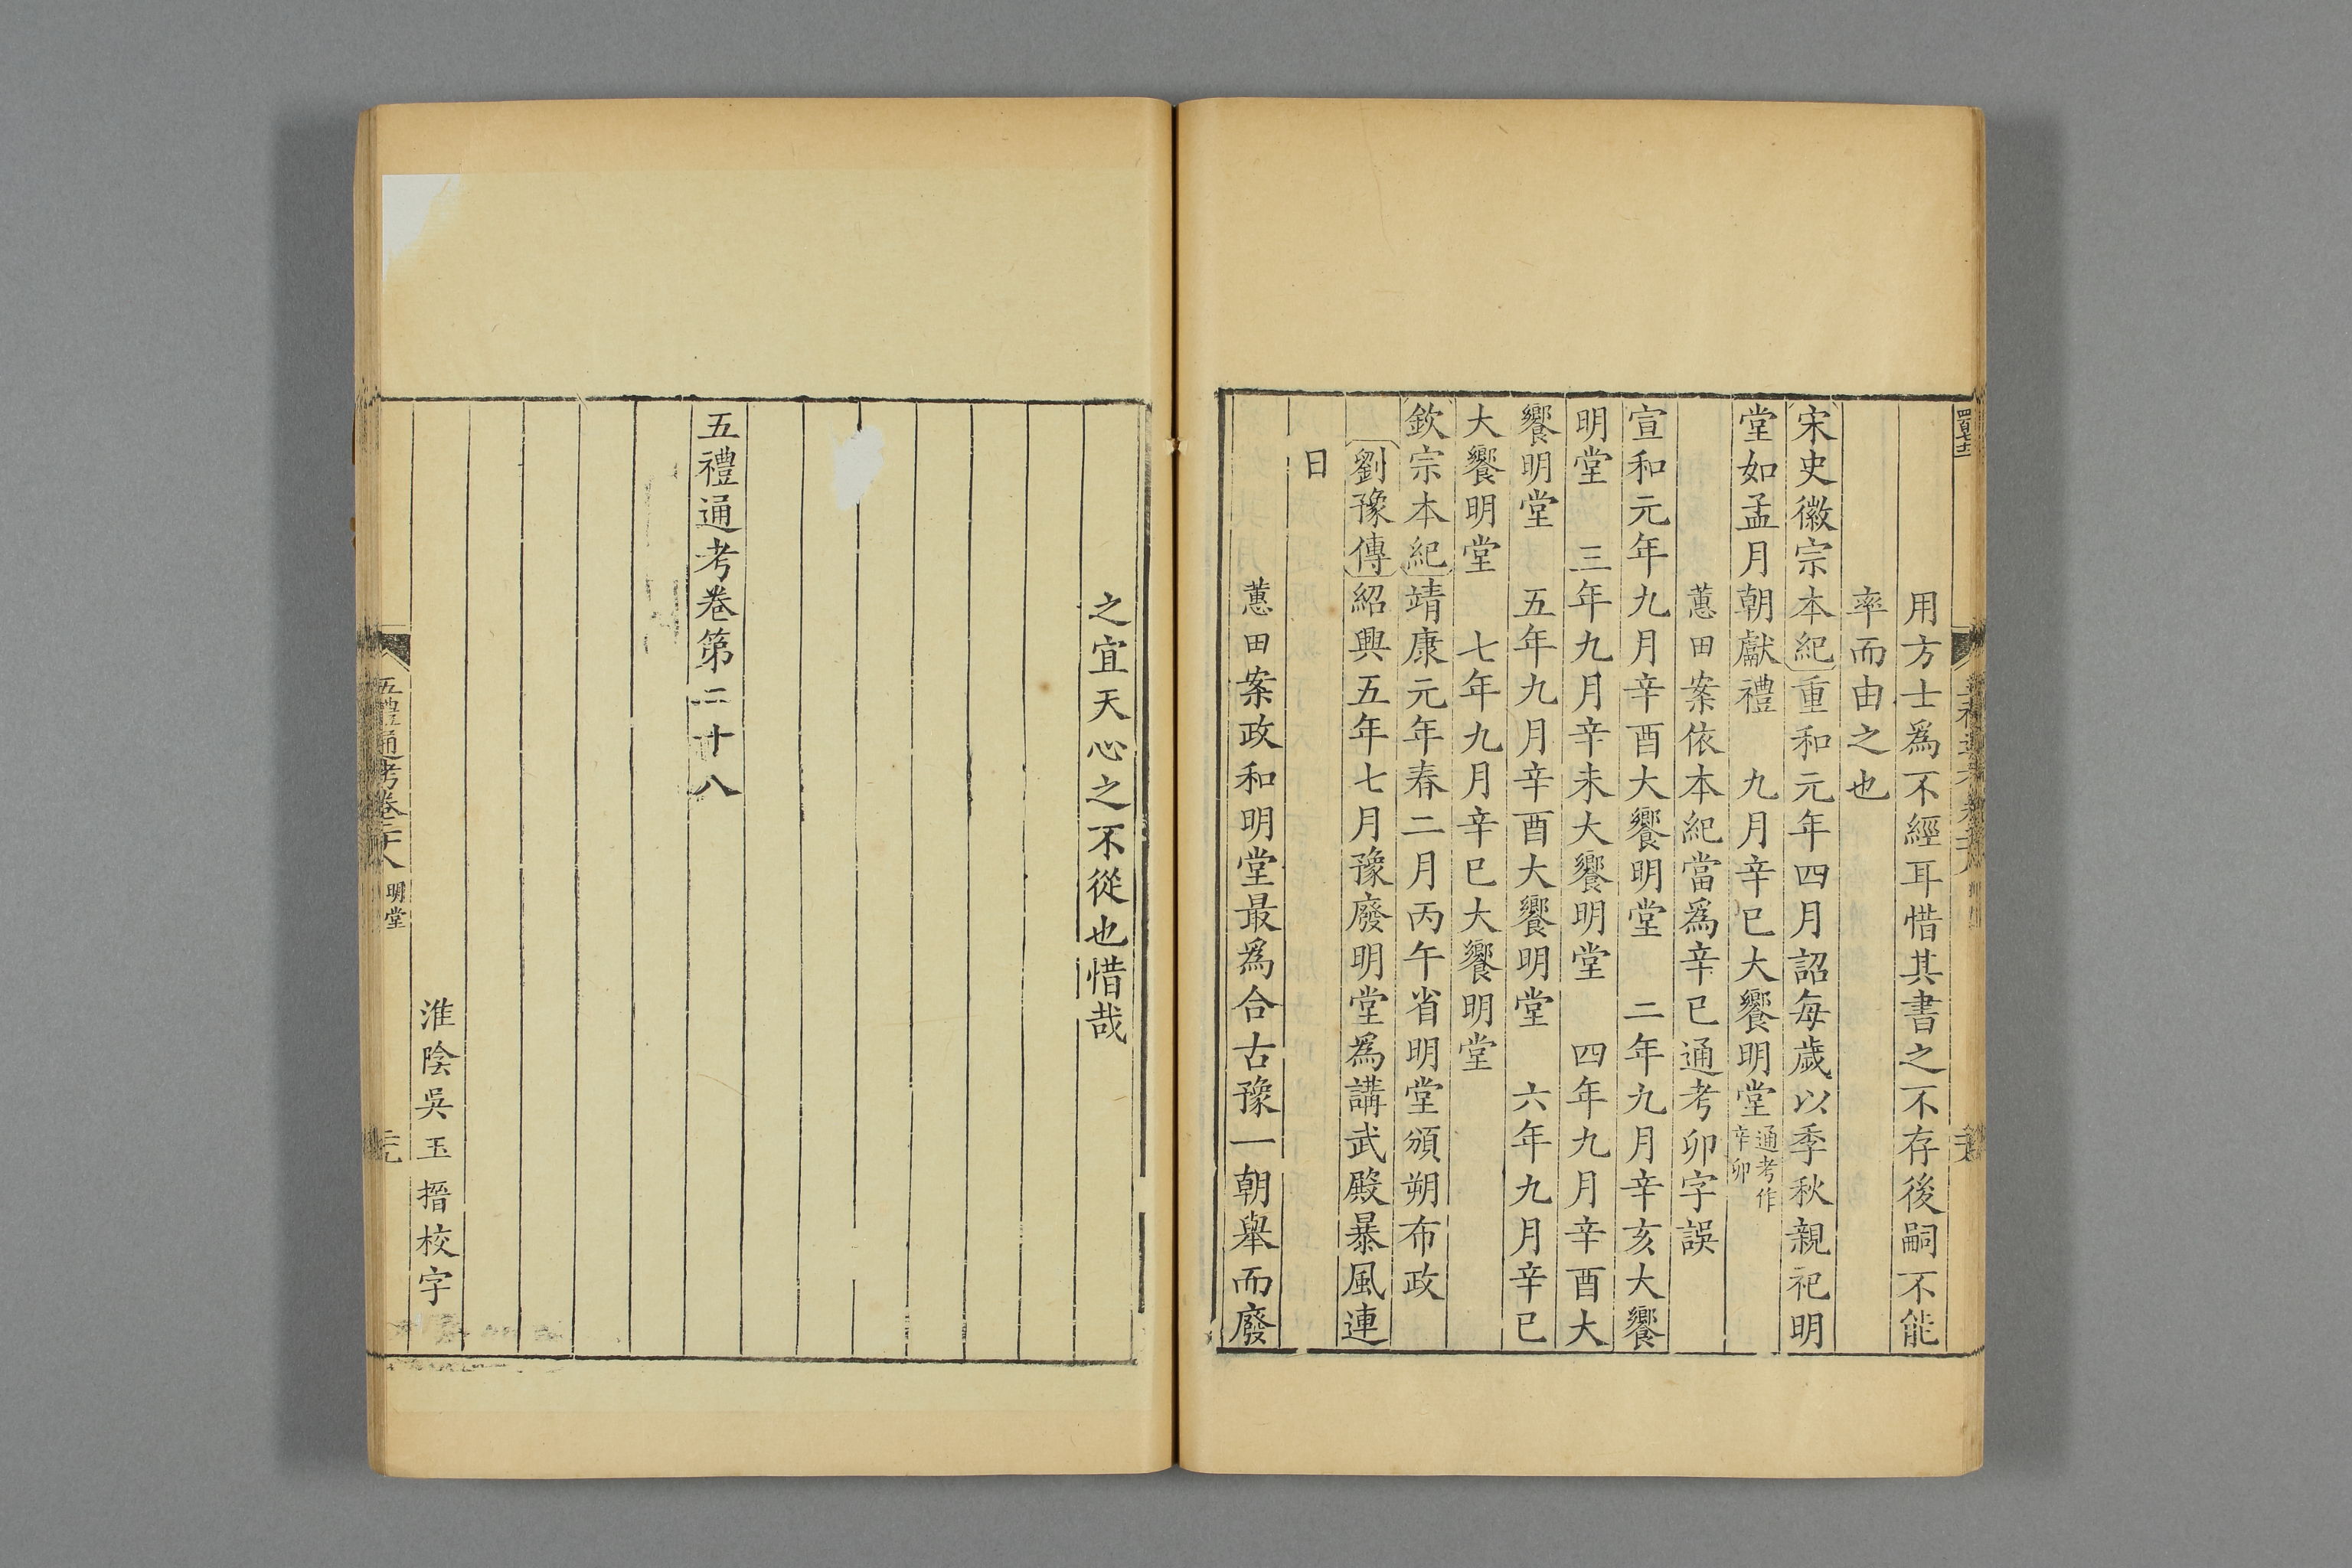 用方士爲不經耳惜其書之不存後嗣不能
率而由之也
宋史徽宗本紀重和元年四月詔每歲以季秋親祀明
堂如孟月朝獻禮　九月辛巳大饗明堂通考作辛卯
蕙田案依本紀當爲辛巳通考卯字誤
宣和元年九月辛酉大饗明堂　二年九月辛亥大饗
明堂　三年九月辛未大饗明堂　四年九月辛酉大
饗明堂　五年九月辛酉大饗明堂　六年九月辛巳
大饗明堂　七年九月辛巳大饗明堂
欽宗本紀靖康元年春二月丙午省明堂頒朔布政
劉豫傳紹興五年七月豫廢明堂爲講武殿暴風連
日
蕙田案政和明堂最爲合古豫一朝舉而廢
之宜天心之不從也惜哉
五禮通考卷第二十八
淮陰吳玉搢校字
五禮通考卷二十八　明堂